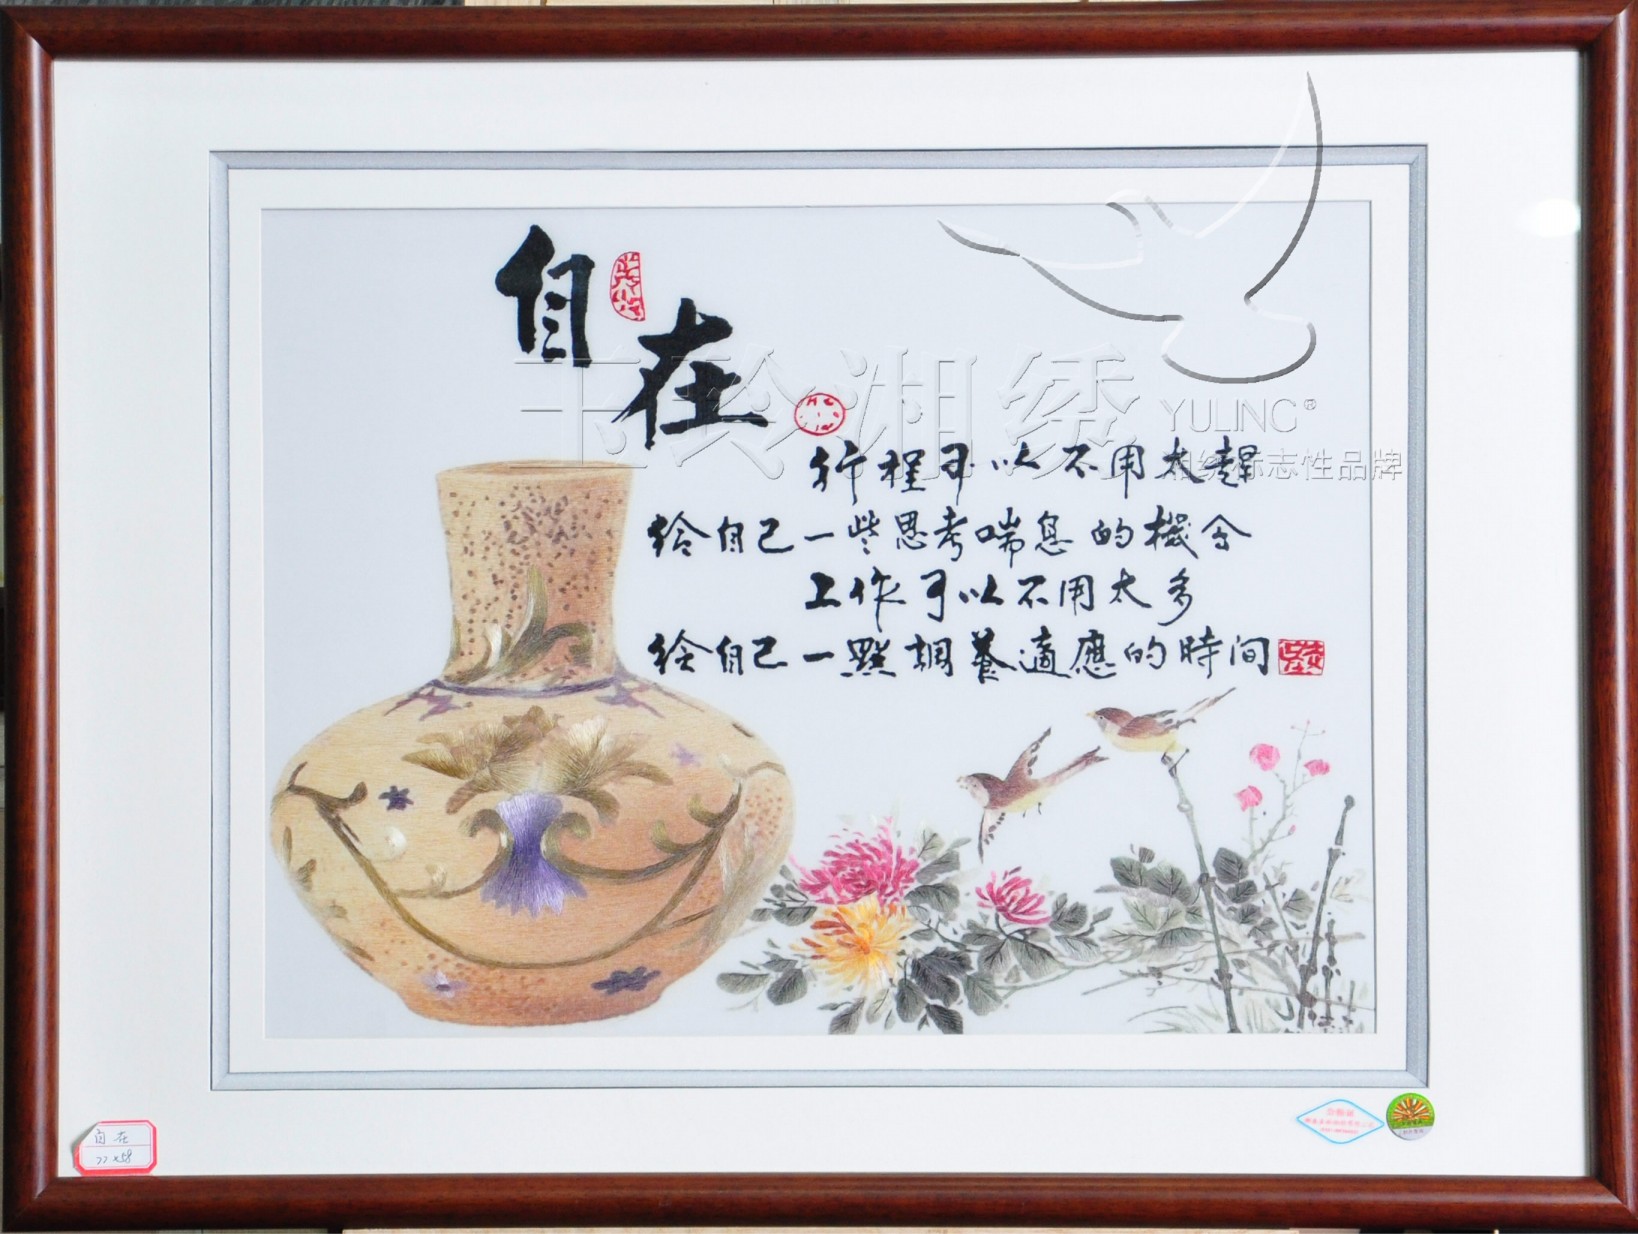 自在
玉玲湘绣
YULING®
湘绣标志性品牌
行程可以不用太趕
給自己一些思考喘息的機会
工作可以不用太多
給自己一點調養適應的時间
自在
77x58
合格证